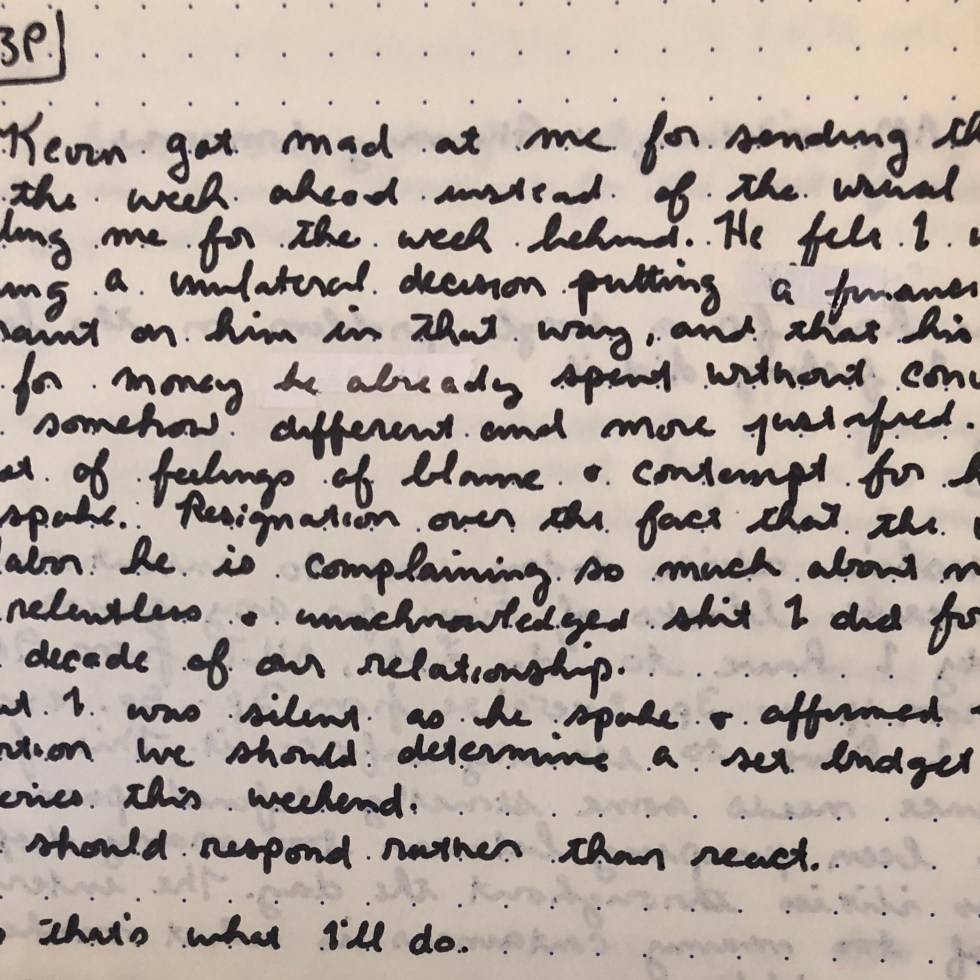 3P
Kevin got mad at me for sending th
the week ahead instead of the usual
ling me for the week behind. He felt I w
ing a unilateral decision putting a financi
raint on him in that way, and that his
for money he already spent without conv
somehow different and more justified.
at of feelings of blame & contempt for h
spoke. Resignation over the fact that the
labor he is complaining so much about m
relentless & unacknowledged shit I did fo
decade of our relationship.
ut I was silent as he spoke & affirmed
ortion we should determine a set budget
eries this weekend.
should respond rather than react.
s that's what I'll do.